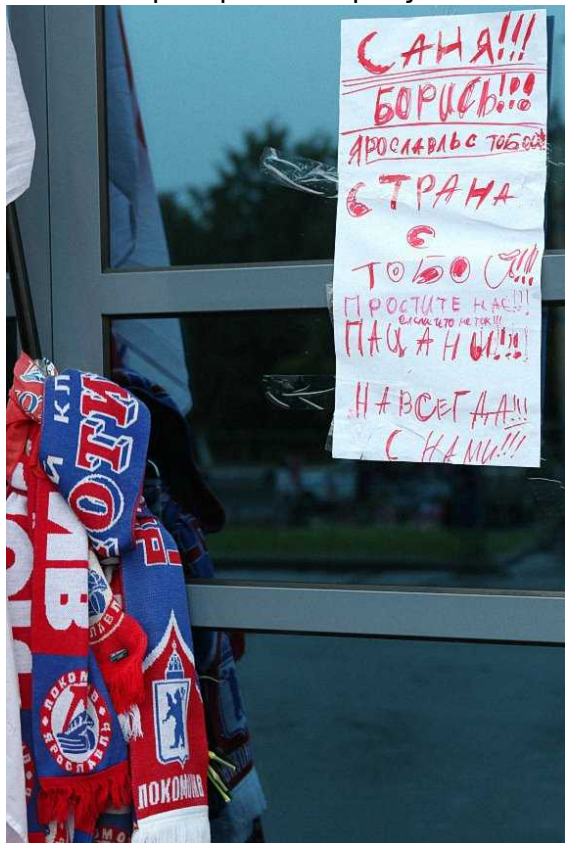 САНЯ!!!
БОРИСЬ!!!
ЯРОСЛАВЛЬ С ТОБОЙ!
СТРАНА
С
ТОБОЙ!!!
ПРОСТИТЕ НАС!!!
если что не так!!!
ПАЦАНЫ!!!
НАВСЕГДА!!!
С НАМИ!!!
ЛОКОМО
ЯРОСЛАВЛЬ
ЛОКОМОТИВ